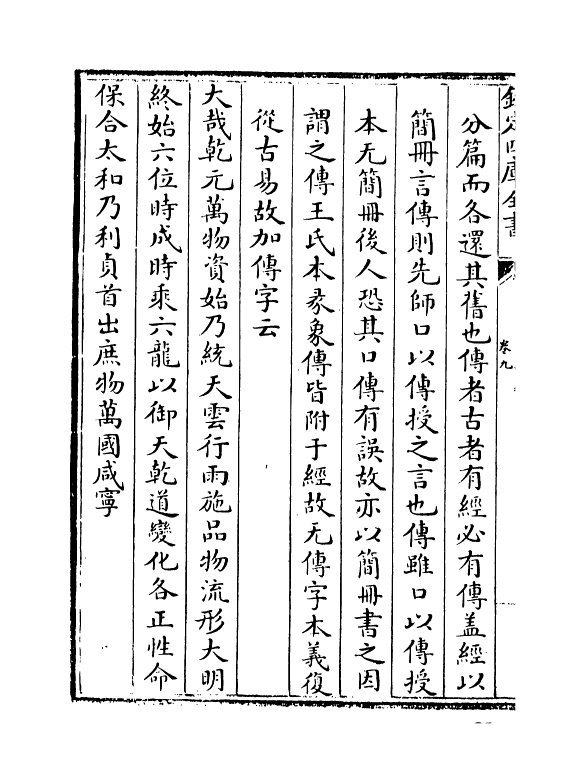 欽定四庫全書
卷九
分篇而各還其舊也傳者古者有經必有傳盖經以
簡冊言傳則先師口以傳授之言也傳雖口以傳授
本无簡冊後人恐其口傳有誤故亦以簡冊書之因
謂之傳王氏本彖象傳皆附于經故无傳字本義復
從古易故加傳字云
大哉乾元萬物資始乃統天雲行雨施品物流形大明
終始六位時成時乘六龍以御天乾道變化各正性命
保合太和乃利貞首出庶物萬國咸寧